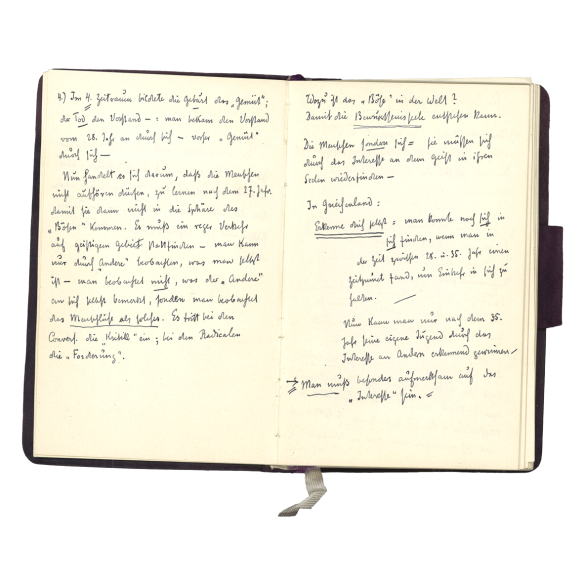 4.) Im 4. Zeitraum bildete die Geburt das „Gemüt“;
der Tod den Verstand – : man bekam den Verstand
vom 28. Jahr an durch sich – vorher „Gemüt“
durch sich —
Nun handelt es sich darum, daß die Menschen
nicht aufhören dürfen, zu lernen nach dem 27. Jahr.
damit sie dann nicht in die Sphäre des
„Bösen“ kommen. Es muß ein reger Verkehr
auf geistigem Gebiet stattfinden – man kann
nur durch „Andere“ beobachten, was man selbst
ist – man beobachtet nicht, was der „Andere“
an sich selbst bemerkt, sondern man beobachtet
das Menschliche als solches. Es tritt bei den
Conserv. die „Kritik“ ein; bei den Radicalen
die „Forderung“.
Wozu ist das „Böse“ in der Welt?
Damit die Bewusstseinsseele entstehen kann.
Die Menschen sondern sich = sie müssen sich
durch das Interesse an dem Geist in ihren
Seelen wiederfinden —
In Griechenland:
Erkenne dich selbst = man konnte noch sich in
sich finden, wenn man in
der Zeit zwischen 28. u. 35. Jahr einen
Zeitpunkt fand, um Einkehr in sich zu
halten. —
Nun kann man nur nach dem 35.
Jahr seine eigene Jugend durch das
Interesse an Andern erkennend gewinnen /
→ Man muß besonders aufmerksam auf das
„Interesse“ sein. =